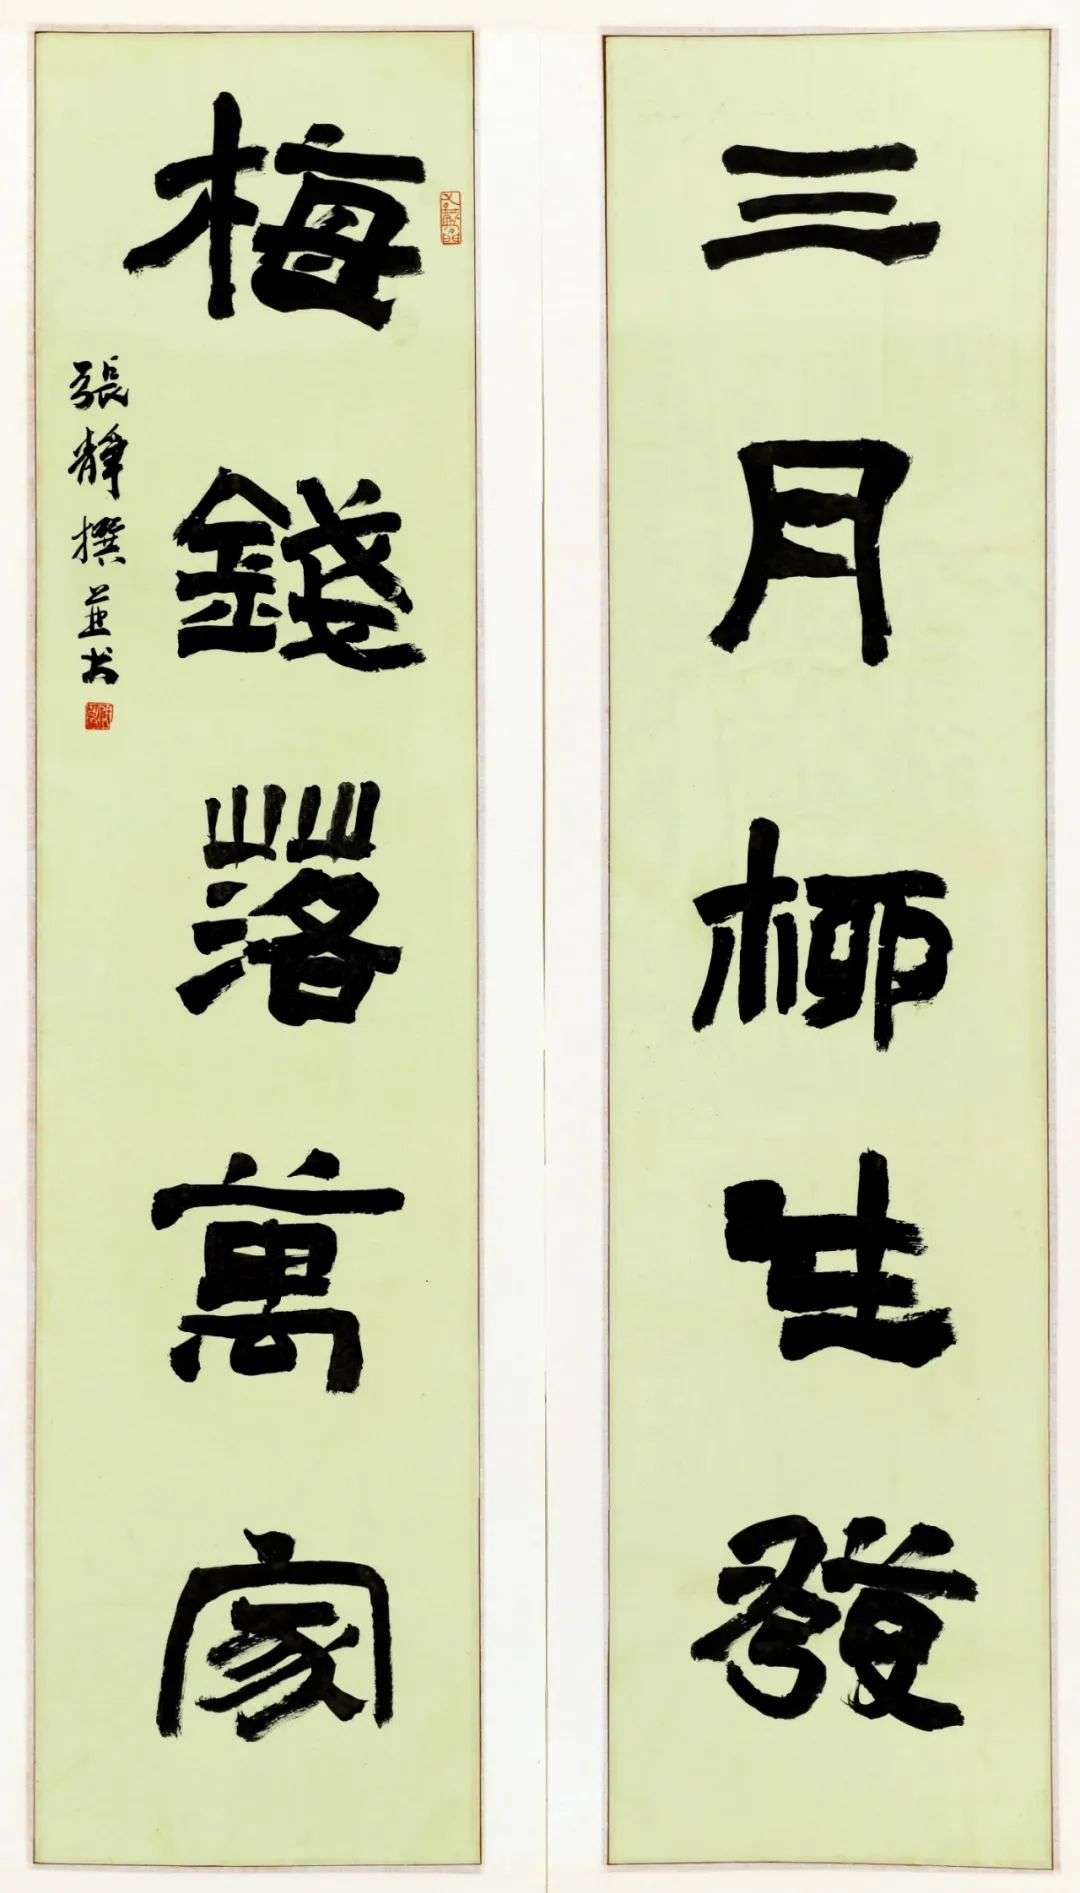 三月柳生發
梅錢落萬家
張靜撰並書